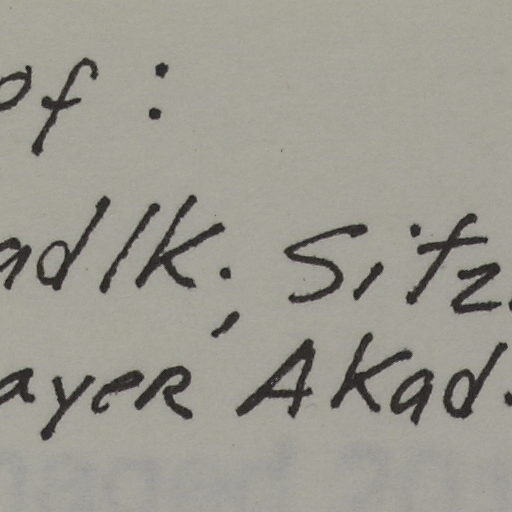 of :
adlk; Sitz.
ayer Akad.